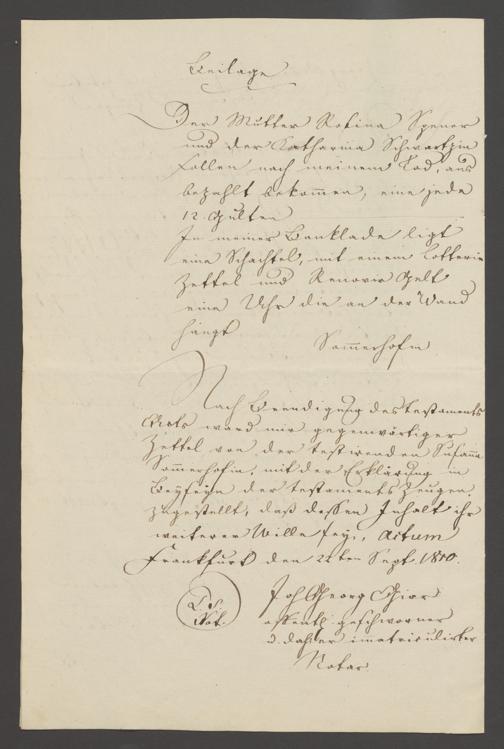 Beilage
Der Mutter Rosina Spener
und der Catharina Schwartzin
sollen nach meinem Tod, aus
bezahlt bekommen, eine jede
12. Gulten
In meiner Banklade ligt
eine Schachtel, mit einem Lotterie
Zettel und Gelt
eine Uhr die an der Wand
hängt
Sommerhofin
Nach Beendigung des testaments
Acts ward mir gegenwärtiger
Zettel von der Susanna
Sommerhofin, mit der Erklärung in
Beyseyn der testaments Zeugen,
zugestellt, daß dessen Inhalt ihr
weiterer Wille seye, actum
Frankfurt den Sept. 1810.
L. S.
Not.
Joh Georg
offentl. geschworner
u. dahier imatriculirter
Notar